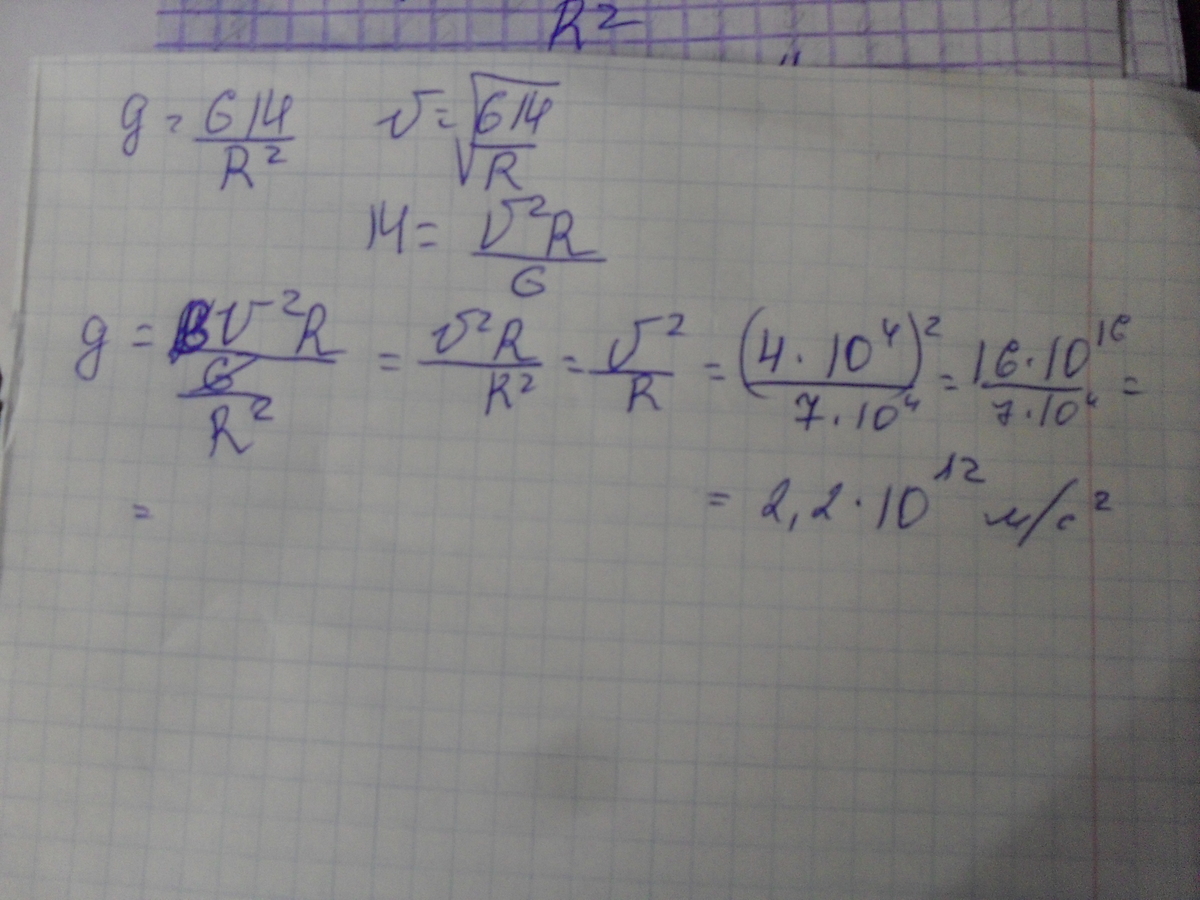 R²
g = GM/R² v = √(GM/R)
M = v²R/G
g = (G v²R/G)/R² = v²R/R² = v²/R = (4·10⁴)²/7·10⁴ = 16·10¹⁶/7·10⁴ =
= = 2,2·10¹² м/с²